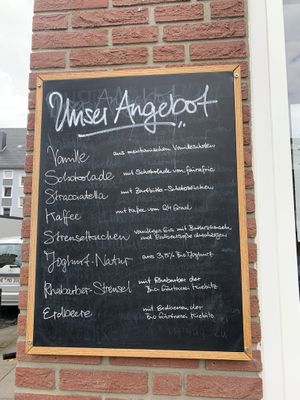 Unser Angebot
Vanille aus mexikanischen Vanilleschoten
Schokolade mit Schokolade von fairafric
Stracciatella mit Zartbitter-Schokostückchen
Kaffee mit Kaffee vom
Streuselkuchen Vanilleeis mit Butterstreuseln
und
Joghurt-Natur aus 3,5% Bio Joghurt
Rhabarber-Streusel mit Rhabarber der
Bio Gärtnerei
Erdbeere mit Erdbeeren der
Bio Gärtnerei